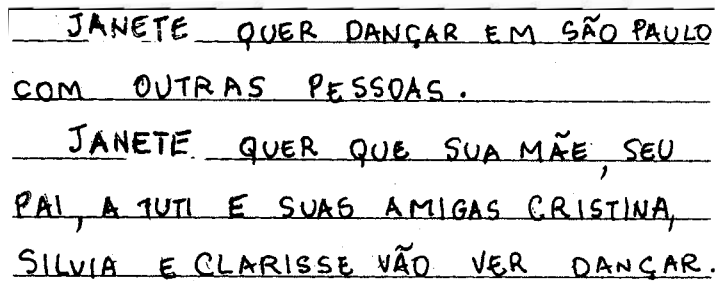 JANETE QUER DANÇAR EM SÃO PAULO
COM OUTRAS PESSOAS.
JANETE QUER QUE SUA MÃE, SEU
PAI, A TUTI E SUAS AMIGAS CRISTINA,
SILVIA E CLARISSE VÃO VER DANÇAR.